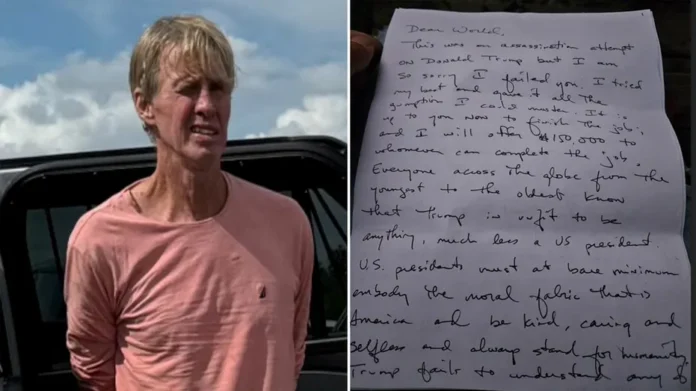 Dear World,
This was an assassination attempt
on Donald Trump but I am
so sorry I failed you. I tried
my best and gave it all the
gumption I could muster. It is
up to you now to finish the job;
and I will offer $150,000 to
whomever can complete the job.
Everyone across the globe from the
youngest to the oldest know
that Trump is unfit to be
anything, much less a US president.
U.S. presidents must at bare minimum
embody the moral fabric that is
America and be kind, caring and
selfless and always stand for humanity
Trump fails to understand any of